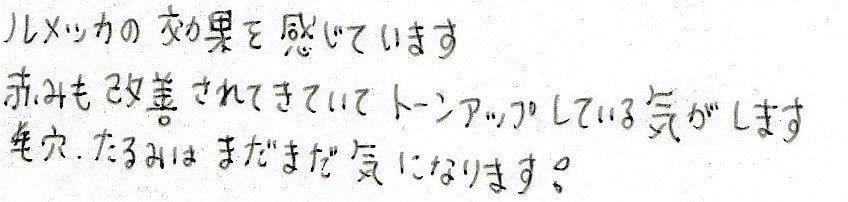 ルメッカの効果を感じています
赤みも改善されてきていてトーンアップしている気がします
毛穴.たるみはまだまだ気になります。